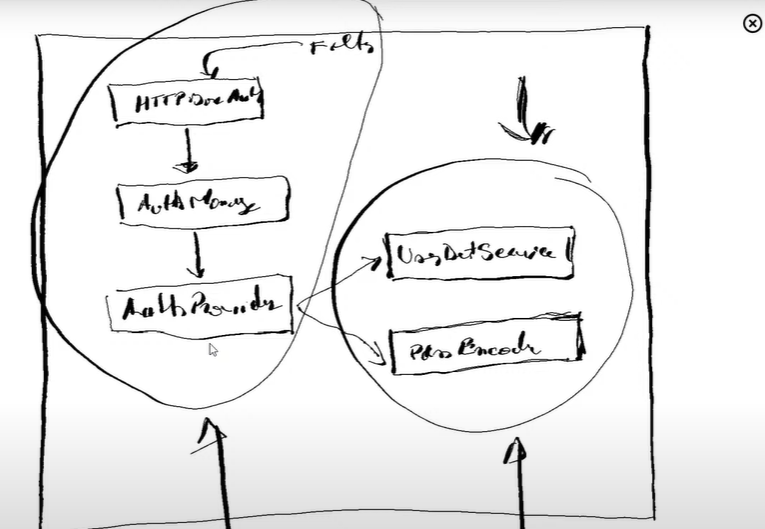 Filter
HTTPBasicAuth
AuthManag
AuthProvider
UserDetService
PassEncoder